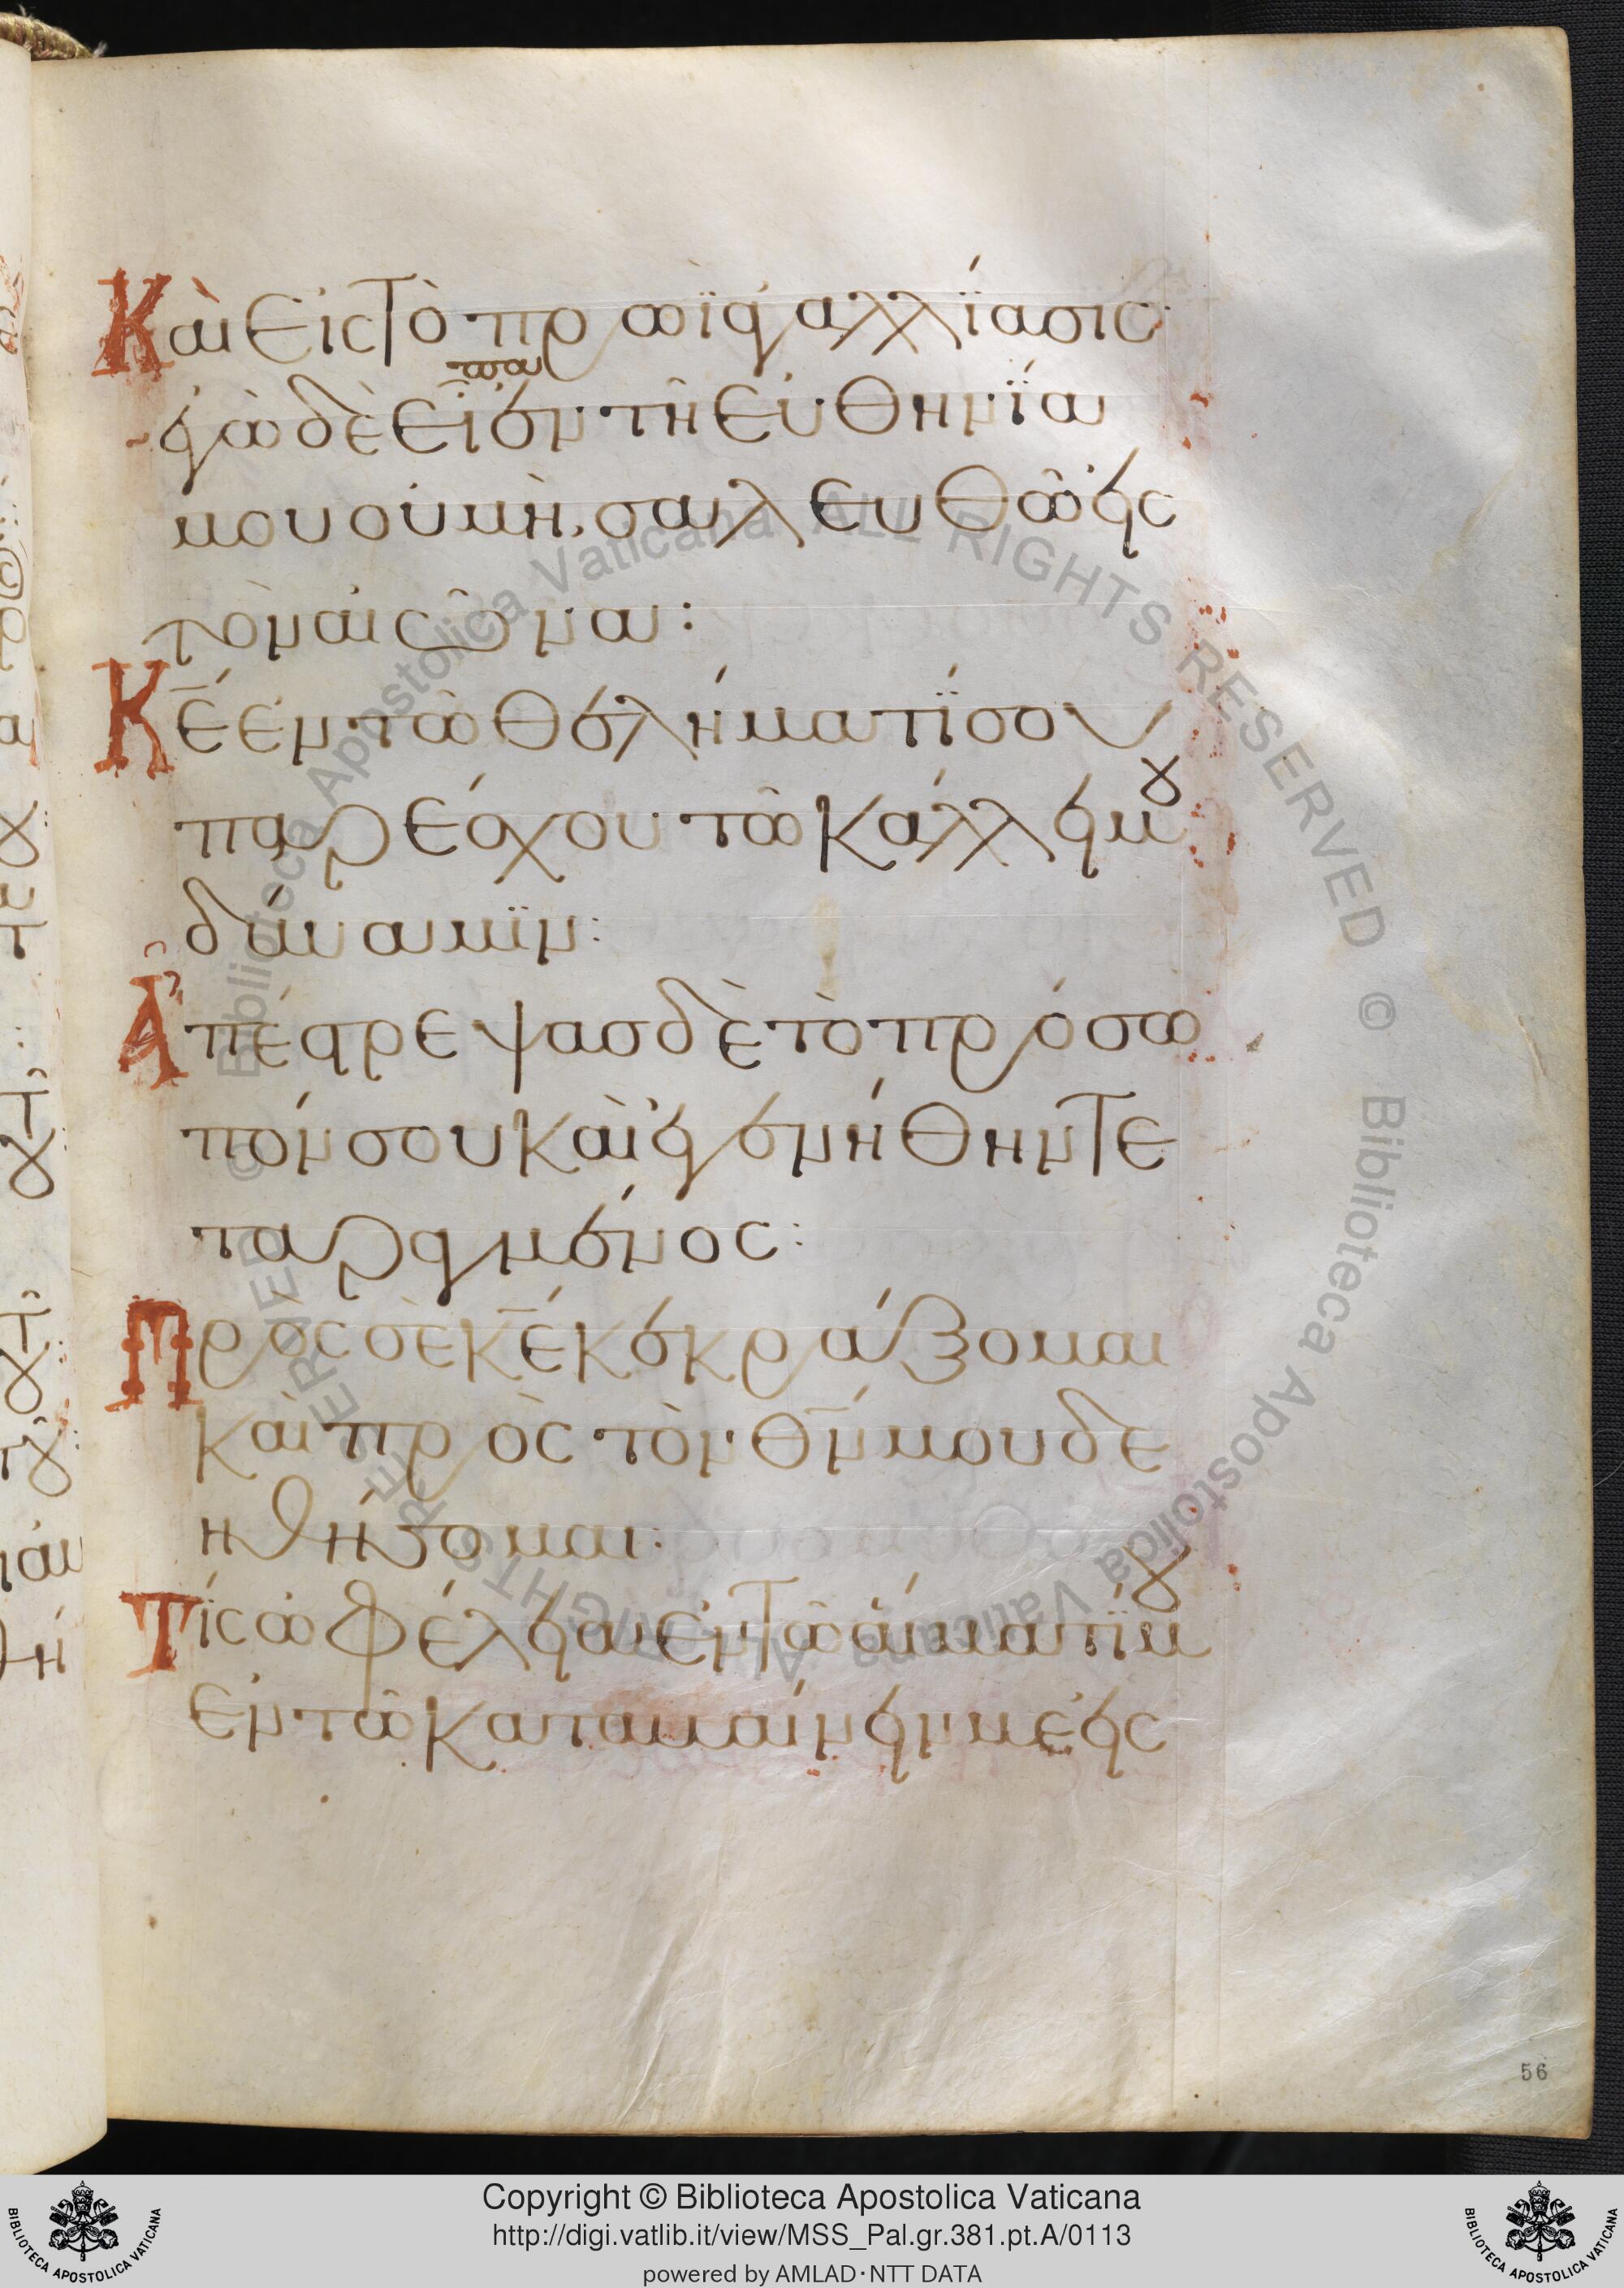 Καὶ εἰς τὸ πρωῒ ἀγαλλίασις·
πα
ἐγὼ δὲ εἶ ἐν τῆ εὐθηνία
μου οὐ μὴ, σαλευθῶ εἰς
τὸν αἰῶνα:
Κ̅ε̅ ἐν τῶ θελήματί σου
παρέσχου τῶ κάλλει μου
δύναμιν:
Ἀπέστρεψασ δὲ τὸ πρόσω
πόν σου καὶ ἐγενήθην τε
ταραγμένος:
Πρὸς σὲ κ̅ε̅ κεκράξομαι
καὶ πρὸς τὸν θ̅ν̅ μου δε
ηθήσομαι·
Τίς ὠφέλεια ἐν τῶ αἵματί μου
ἐν τῶ καταβαίνειν με εἰς
56
© Biblioteca Apostolica Vaticana ALL RIGHTS RESERVED © Biblioteca Apostolica Vaticana ALL RIGHTS RESERVED
Copyright © Biblioteca Apostolica Vaticana
http://digi.vatlib.it/view/MSS_Pal.gr.381.pt.A/0113
powered by AMLAD·NTT DATA
BIBLIOTECA APOSTOLICA VATICANA
BIBLIOTECA APOSTOLICA VATICANA